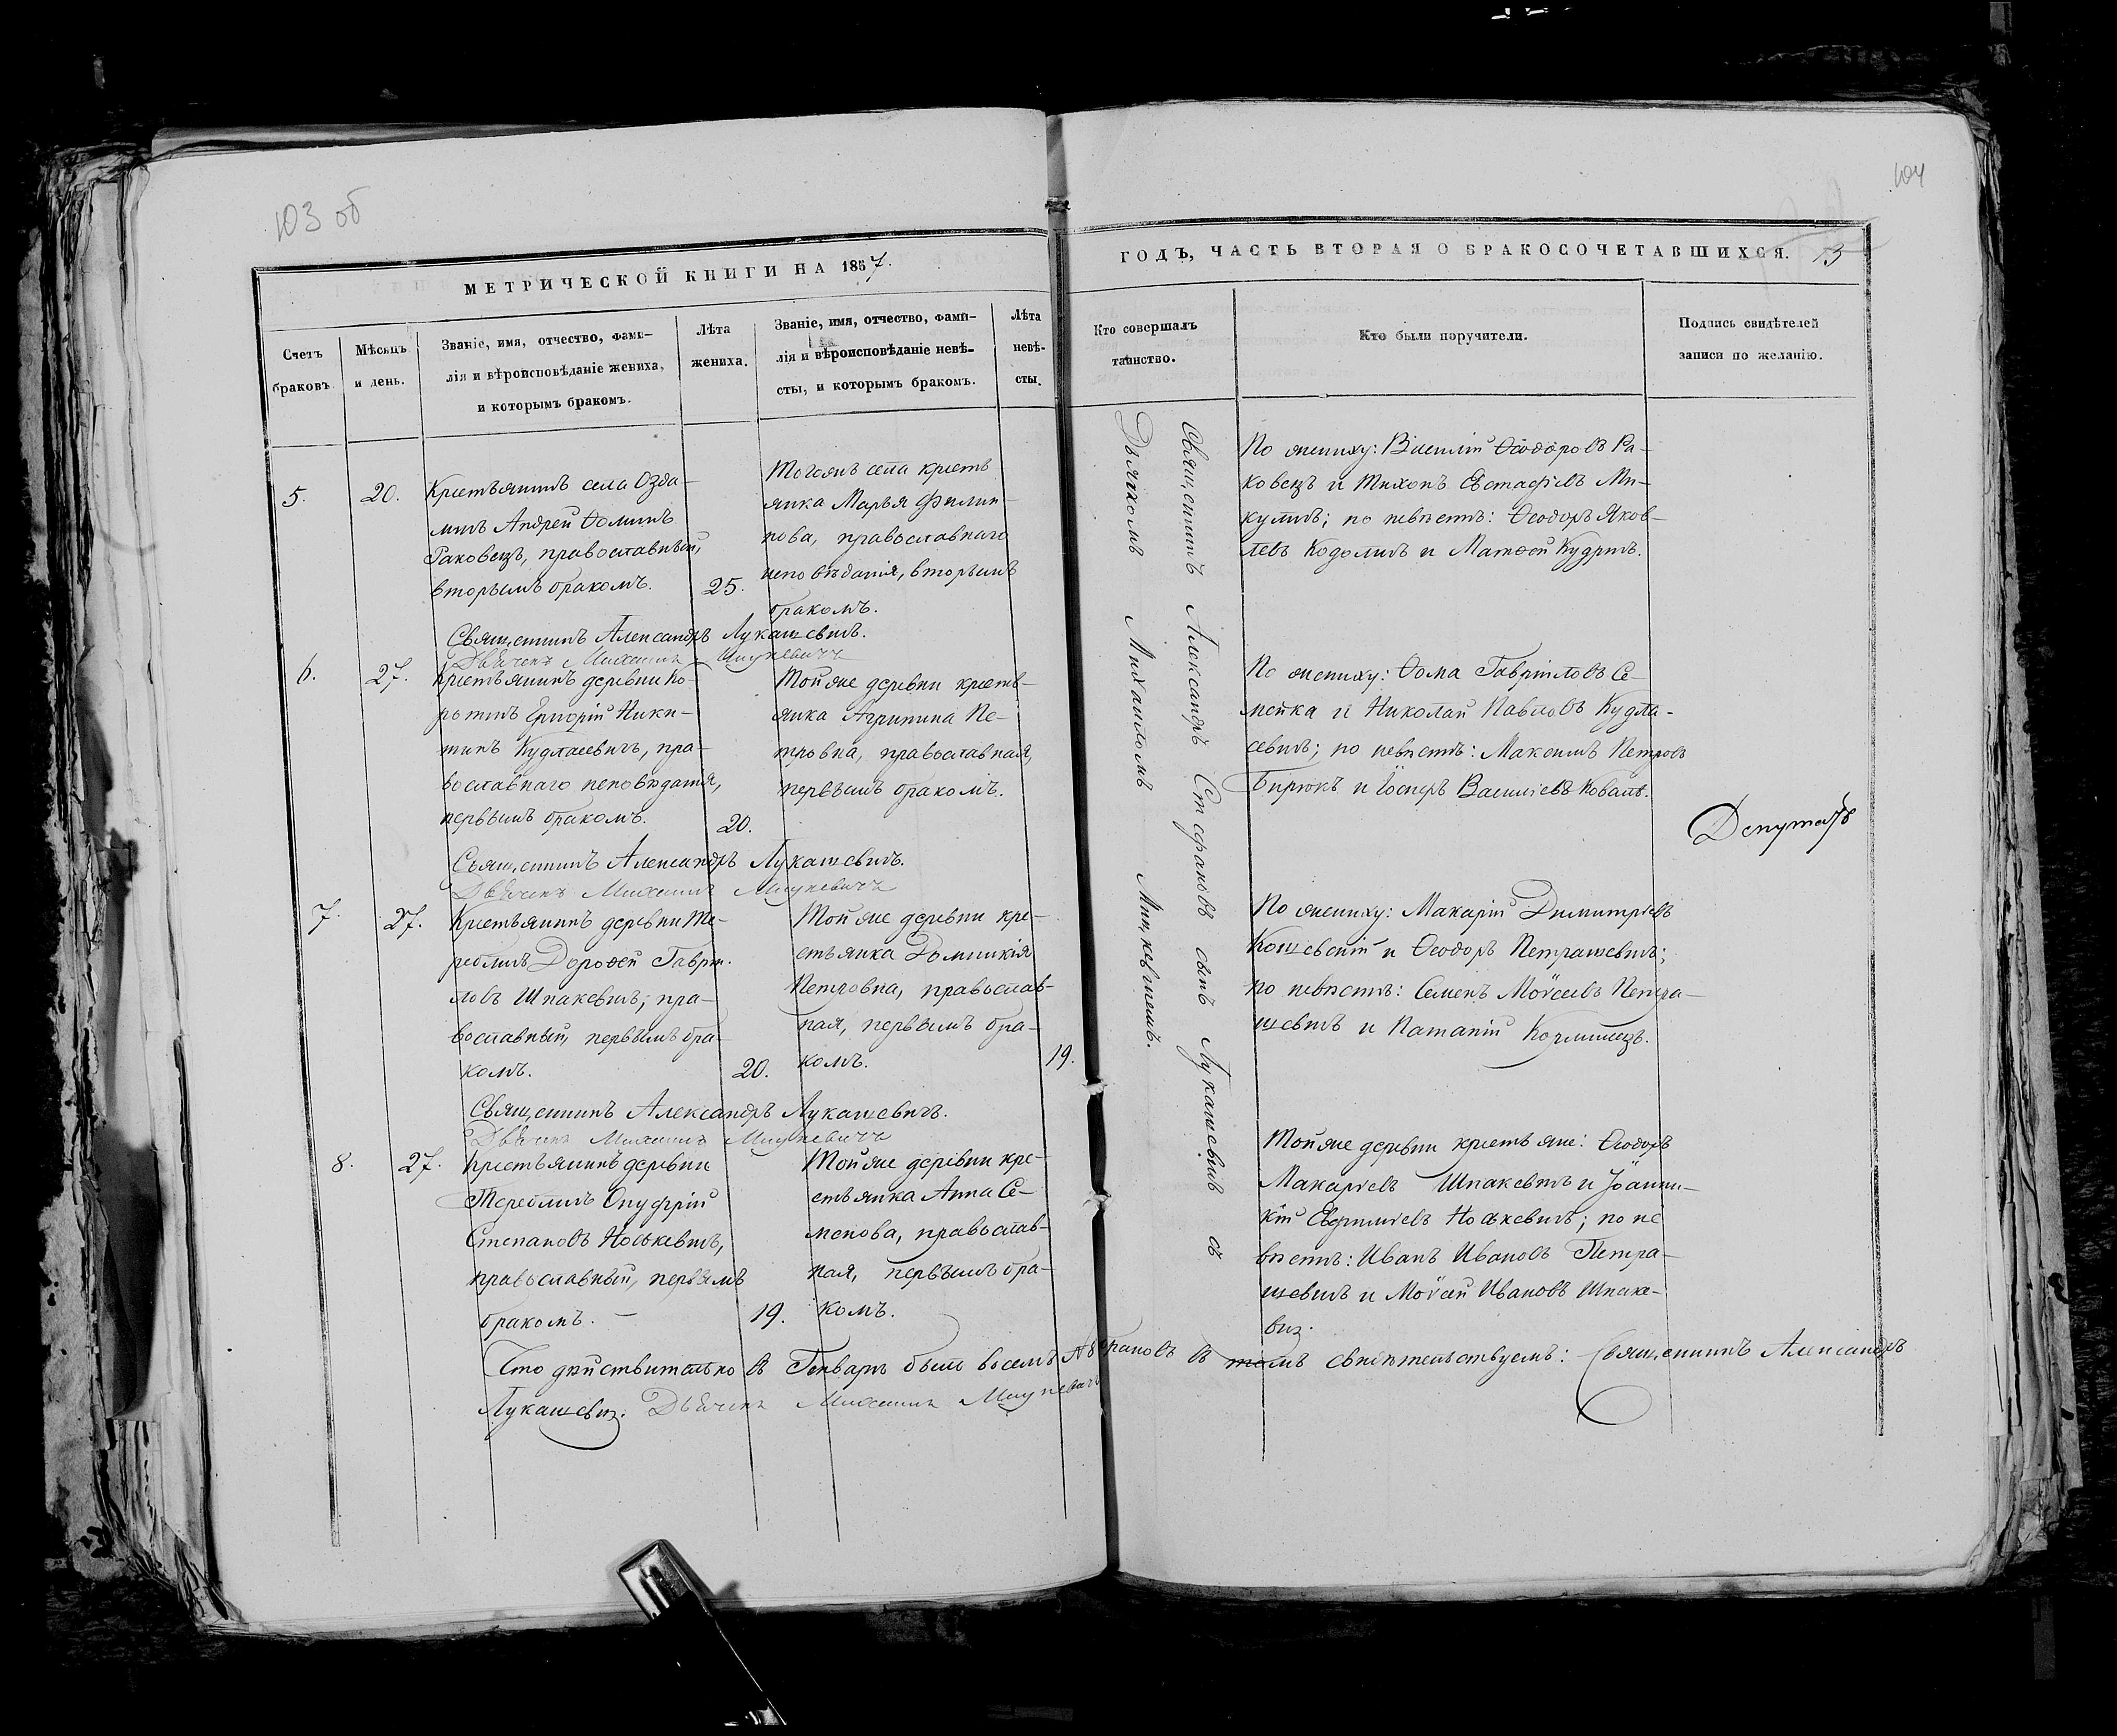 103 об
104
МЕТРИЧЕСКОЙ КНИГИ НА 1857.
ГОДЪ, ЧАСТЬ ВТОРАЯ О БРАКОСОЧЕТАВШИХСЯ. 13
Счетъ
браковъ.
Мѣсяцъ
и день.
Званіе, имя, отчество, фами-
лія и вѣроисповѣданіе жениха,
и которымъ бракомъ.
Лѣта
жениха.
Званіе, имя, отчество, фами-
лія и вѣроисповѣданіе невѣ-
сты, и которымъ бракомъ.
Лѣта
невѣ-
сты.
Кто совершалъ
таинство.
Кто были поручители.
Подпись свидѣтелей
записи по желанію.
5.
20.
Крестьянинъ села Озда-
мичъ Андрей Ѳоминъ
Раковецъ, православный,
вторымъ бракомъ.
25.
Тогожъ села кресть
янка Марья Филип-
пова, православнаго
исповѣданія, вторымъ
бракомъ.
По жениху: Василій Ѳеодоровъ Ра-
ковецъ и Тихонъ Евстафіевъ Ми-
куличъ; по невѣстѣ: Ѳеодоръ Яков-
левъ и Матѳей
Священникъ Александръ Лукашевичъ.
Дьячекъ Михаилъ Мицкевичъ
6.
27.
Крестьянинъ деревни Ко-
ротичъ Григорій Ники-
тинъ Кудласевичъ, пра-
вославнаго исповѣданія,
первымъ бракомъ.
20.
Той же деревни кресть-
янка Агрипина Пе-
тровна, православная,
первымъ бракомъ.
По жениху: Ѳома Гавріиловъ Се-
мейка и Николай Павловъ Кудла-
севичъ; по невѣстѣ: Максимъ Петровъ
Бирюкъ и Іосифъ Василіевъ Коваль.
Депутатъ
Священникъ Александръ Лукашевичъ.
Дьячекъ Михаилъ Мицкевичъ
7.
27.
Крестьянинъ деревни Те-
ребличъ Дороѳей Гаврі-
ловъ Шпакевичъ, пра-
вославный, первымъ бра-
комъ.
20.
Той же деревни кре-
стьянка Домникія
Петровна, православ-
ная, первымъ бра-
комъ.
19.
По жениху: Макарій Димитріевъ
и Ѳеодоръ Петрашевичъ;
по невѣстѣ: Семенъ Моѵсеевъ Петра-
шевичъ и
Священникъ Александръ Лукашевичъ.
Дьячекъ Михаилъ Мицкевичъ
8.
27.
Крестьянинъ деревни
Теребличъ Онуфрій
Степановъ Носкевичъ,
православный, первымъ
бракомъ. —
19.
Той же деревни кре-
стьянка Анна Се-
менова, православ-
ная, первымъ бра-
комъ.
Той же деревни крестьяне: Ѳеодоръ
Макаріевъ Шпакевичъ и Іоанни-
кій Носкевичъ; по не
вѣстѣ: Иванъ Ивановъ Петра-
шевичъ и Моѵсей Ивановъ Шпаке-
вич.
Священникъ Александръ Стефановъ сынъ Лукашевичъ съ
Дьячкомъ Михаиломъ Мицкевичемъ.
Что дѣйствительно въ Генварѣ было восемь № браковъ въ томъ свидѣтельствуемъ: Священникъ Александръ
Лукашевич. Дьячекъ Михаилъ Мицкевичъ